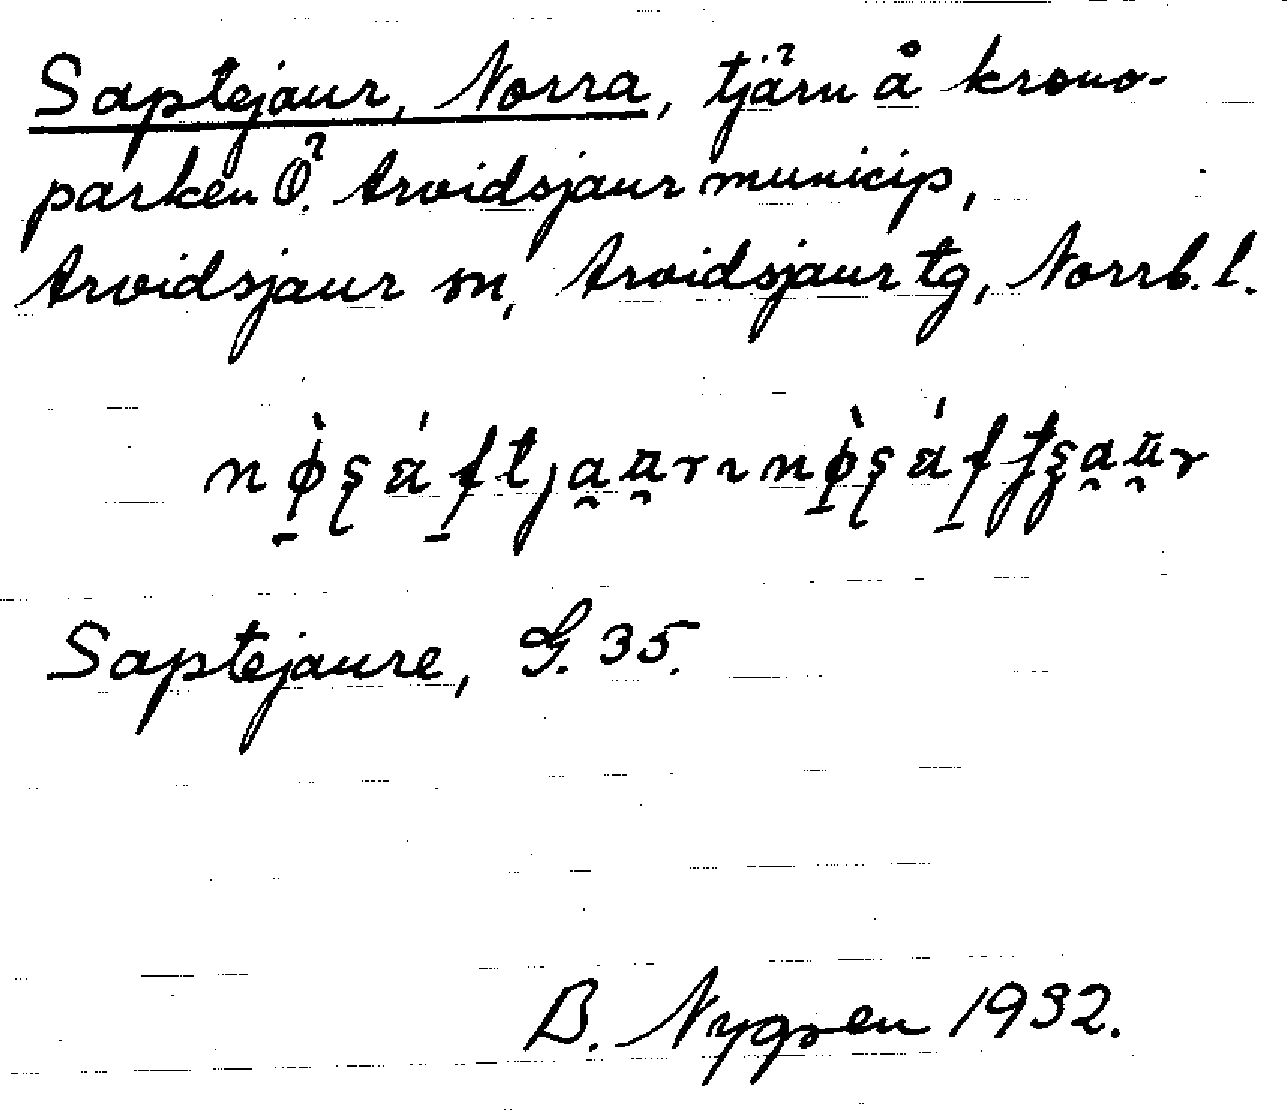 Saptejaur, Norra, tjärn å krono-
parken Ö. Arvidsjaur municip,
Arvidsjaur sn, Arvidsjaur tg, Norrb. l.
Saptejaure, G. 35.
B. Nygren 1932.